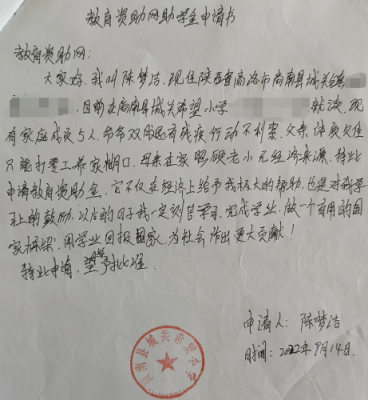 教育资助网助学金申请书
教育资助网:
大家好,我叫陈梦浩,现住陕西省商洛市商南县城关
目前在商南县城关希望小学 就读,现
有家庭成员5人,爷爷双腿患有残疾行动不利索,父亲体质欠佳
只能打零工养家糊口,母亲在家照顾老小无经济来源,特此
申请教育资助金,它不仅在经济上给予我极大的帮助,也是对我学
习上的鼓励,以后的日子我一定刻苦学习,完成学业,做一个有用的国
家栋梁,用学业回报国家,为社会作出更大贡献!
特此申请,望予批准.
申请人:陈梦浩
时间:2022年9月14日.
商南县城关希望小学